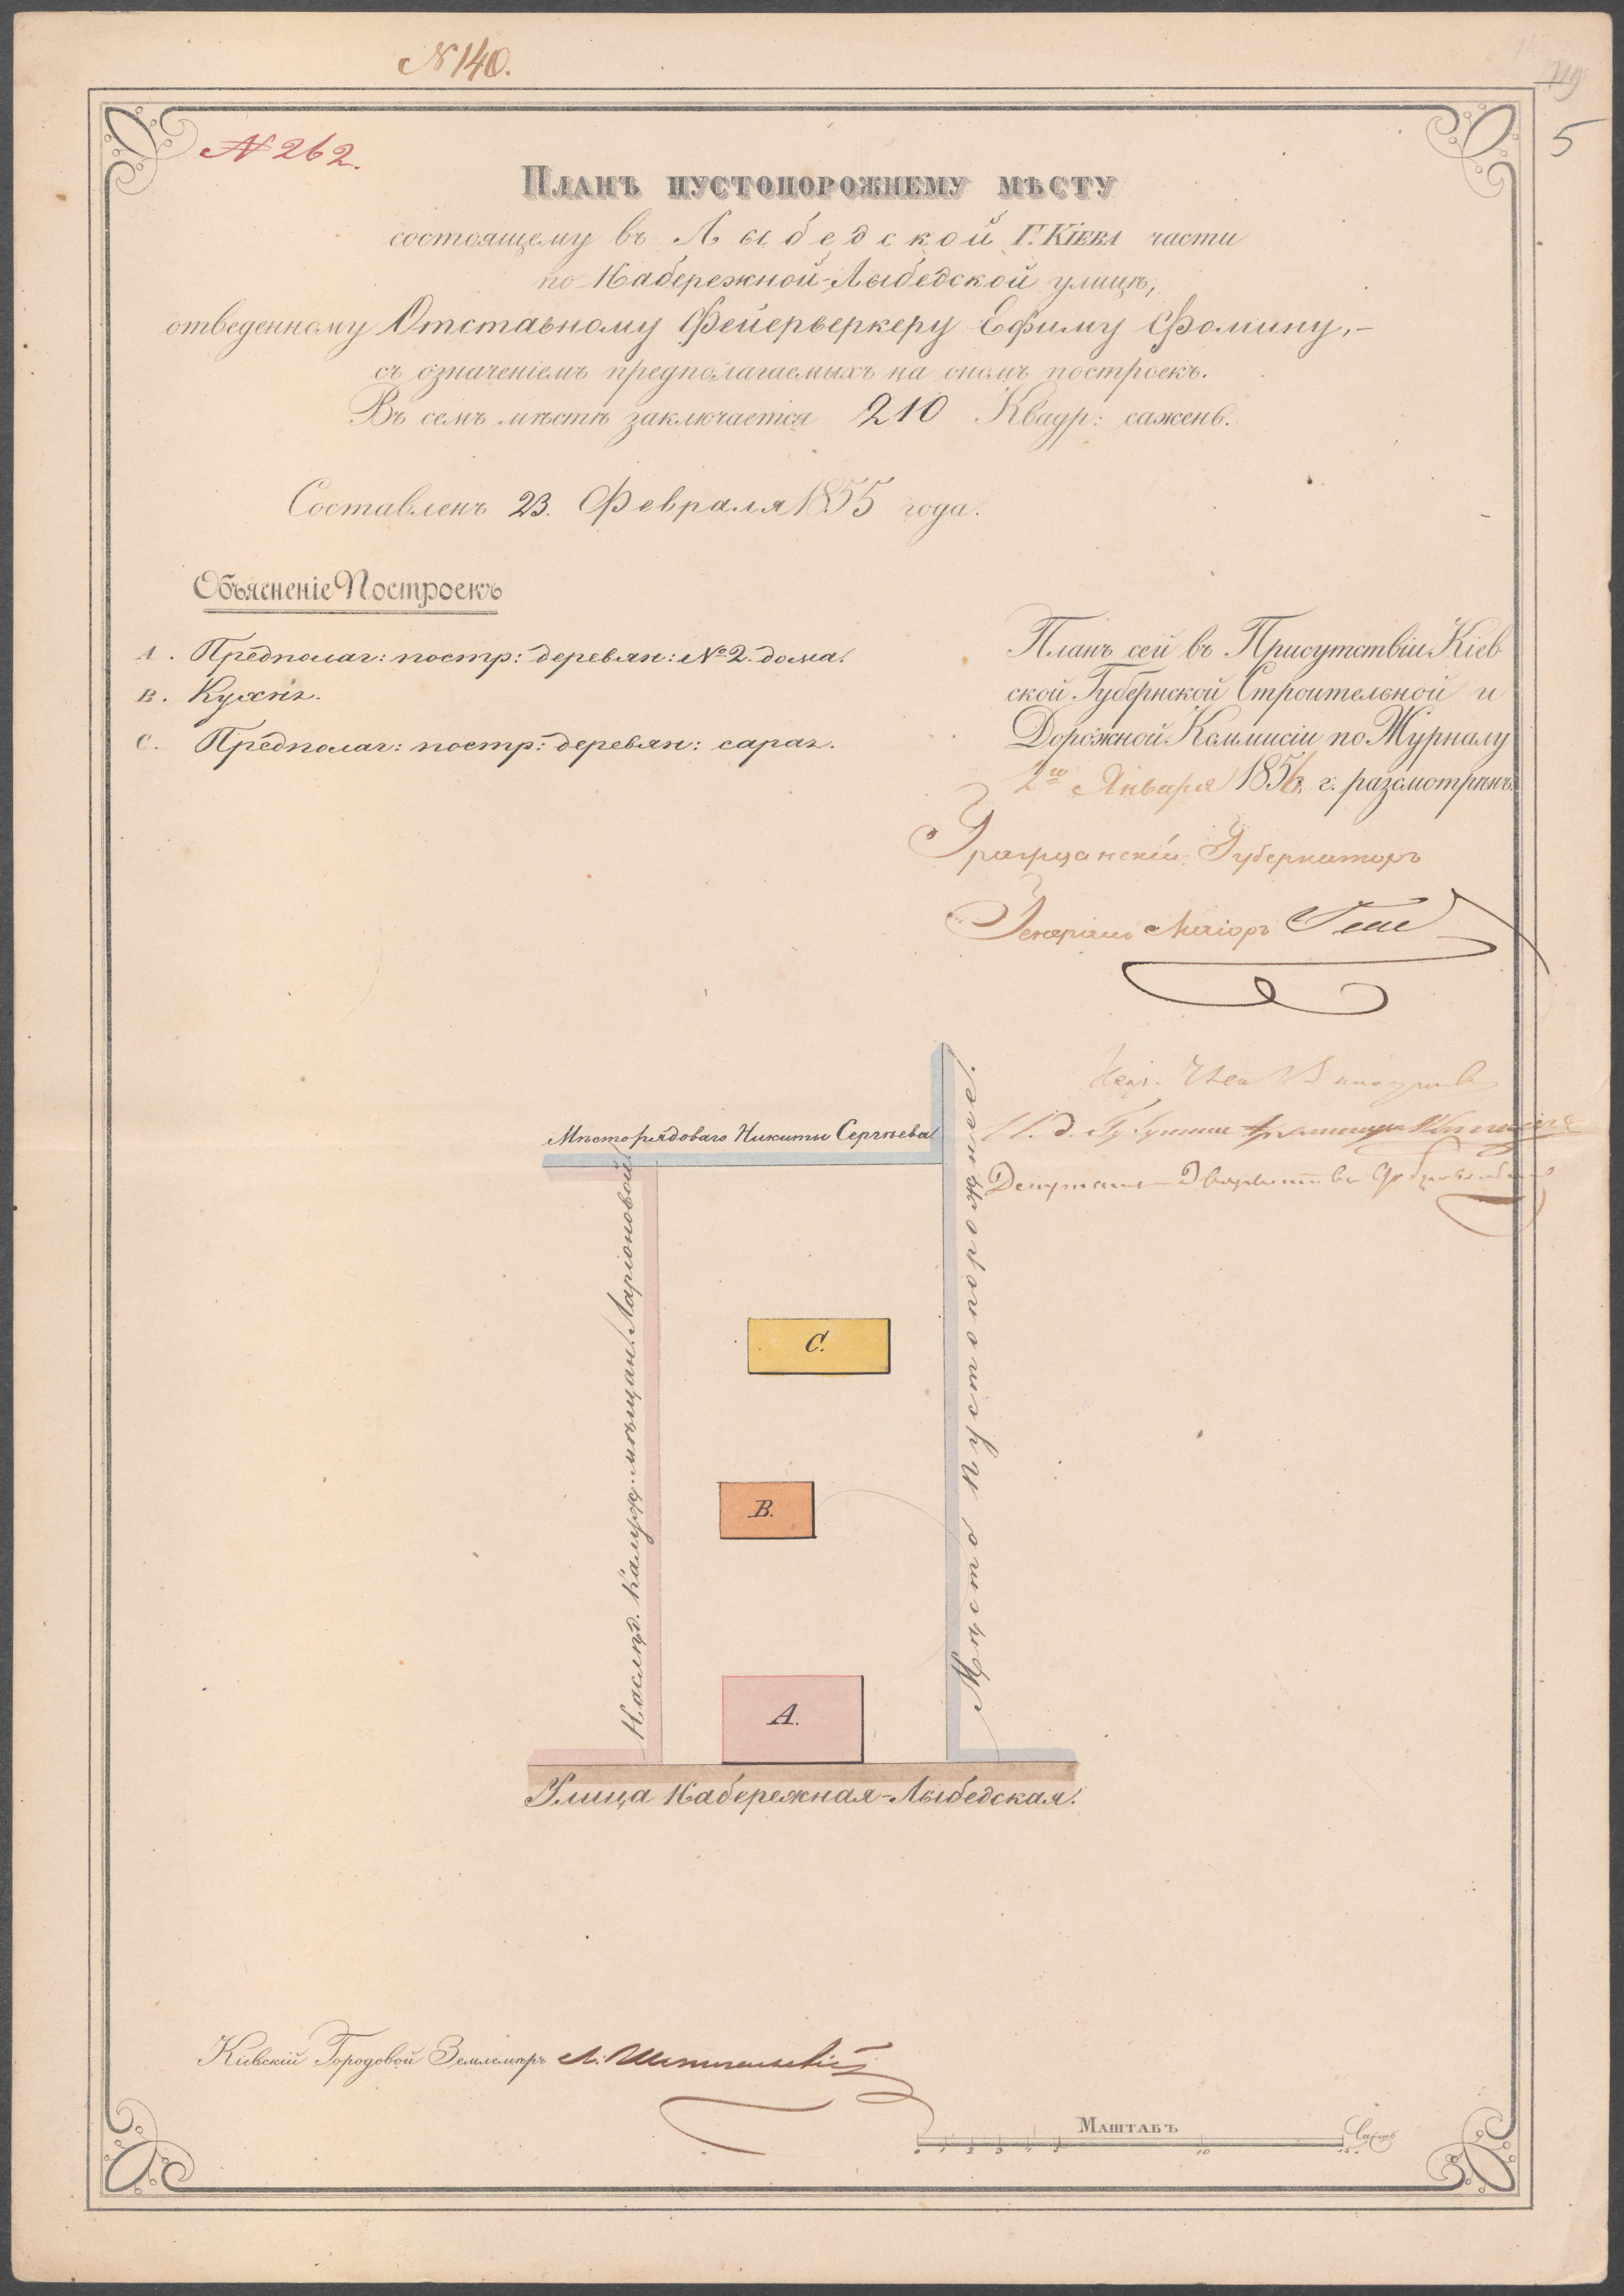 № 140.
119
5
№ 262.
Планъ пустопорожнему мѣсту
состоящему въ Лыбедской Г. Кіева части
по Набережной-Лыбедской улицѣ,
отведенному Отставному Фейерверкеру Ефиму Фомину,
съ означеніемъ предполагаемыхъ на ономъ построекъ.
Въ семъ мѣстѣ заключается 210 Квадр: сажень.
Составленъ 23. Февраля 1855 года.
Объясненіе Построекъ
А. Предполаг: постр: деревян: № 2. дома.
В. Кухня.
С. Предполаг: постр: деревян: сарая.
Планъ сей въ Присутствіи Кіев
ской Губернской Строительной и
Дорожной Коммисіи по Журналу
2го Января 1856 г. разсмотрѣнъ.
Гражданскій Губернаторъ
Генералъ Маіоръ Гессе
И. д.
Депутатъ Дворянства
Мѣсто рядоваго Никиты Сергѣева
Наслѣд. Калуж. мѣщан. Ларіоновой
Мѣсто пустопорожнее.
С.
В.
А.
Улица Набережная-Лыбедская.
Кіевскій Городовой Землемѣръ
Маштабъ
Сажень
0 1 2 3 4 5 10 15.